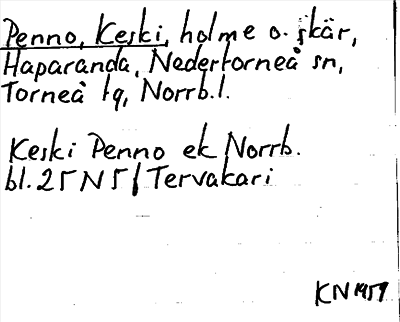 Penno, Keski, holme o. skär,
Haparanda, Nedertorneå sn,
Torneå tg, Norrb.l.
Keski Penno ek Norrb.
bl. 25 N 5 / Tervakari
KN 1959